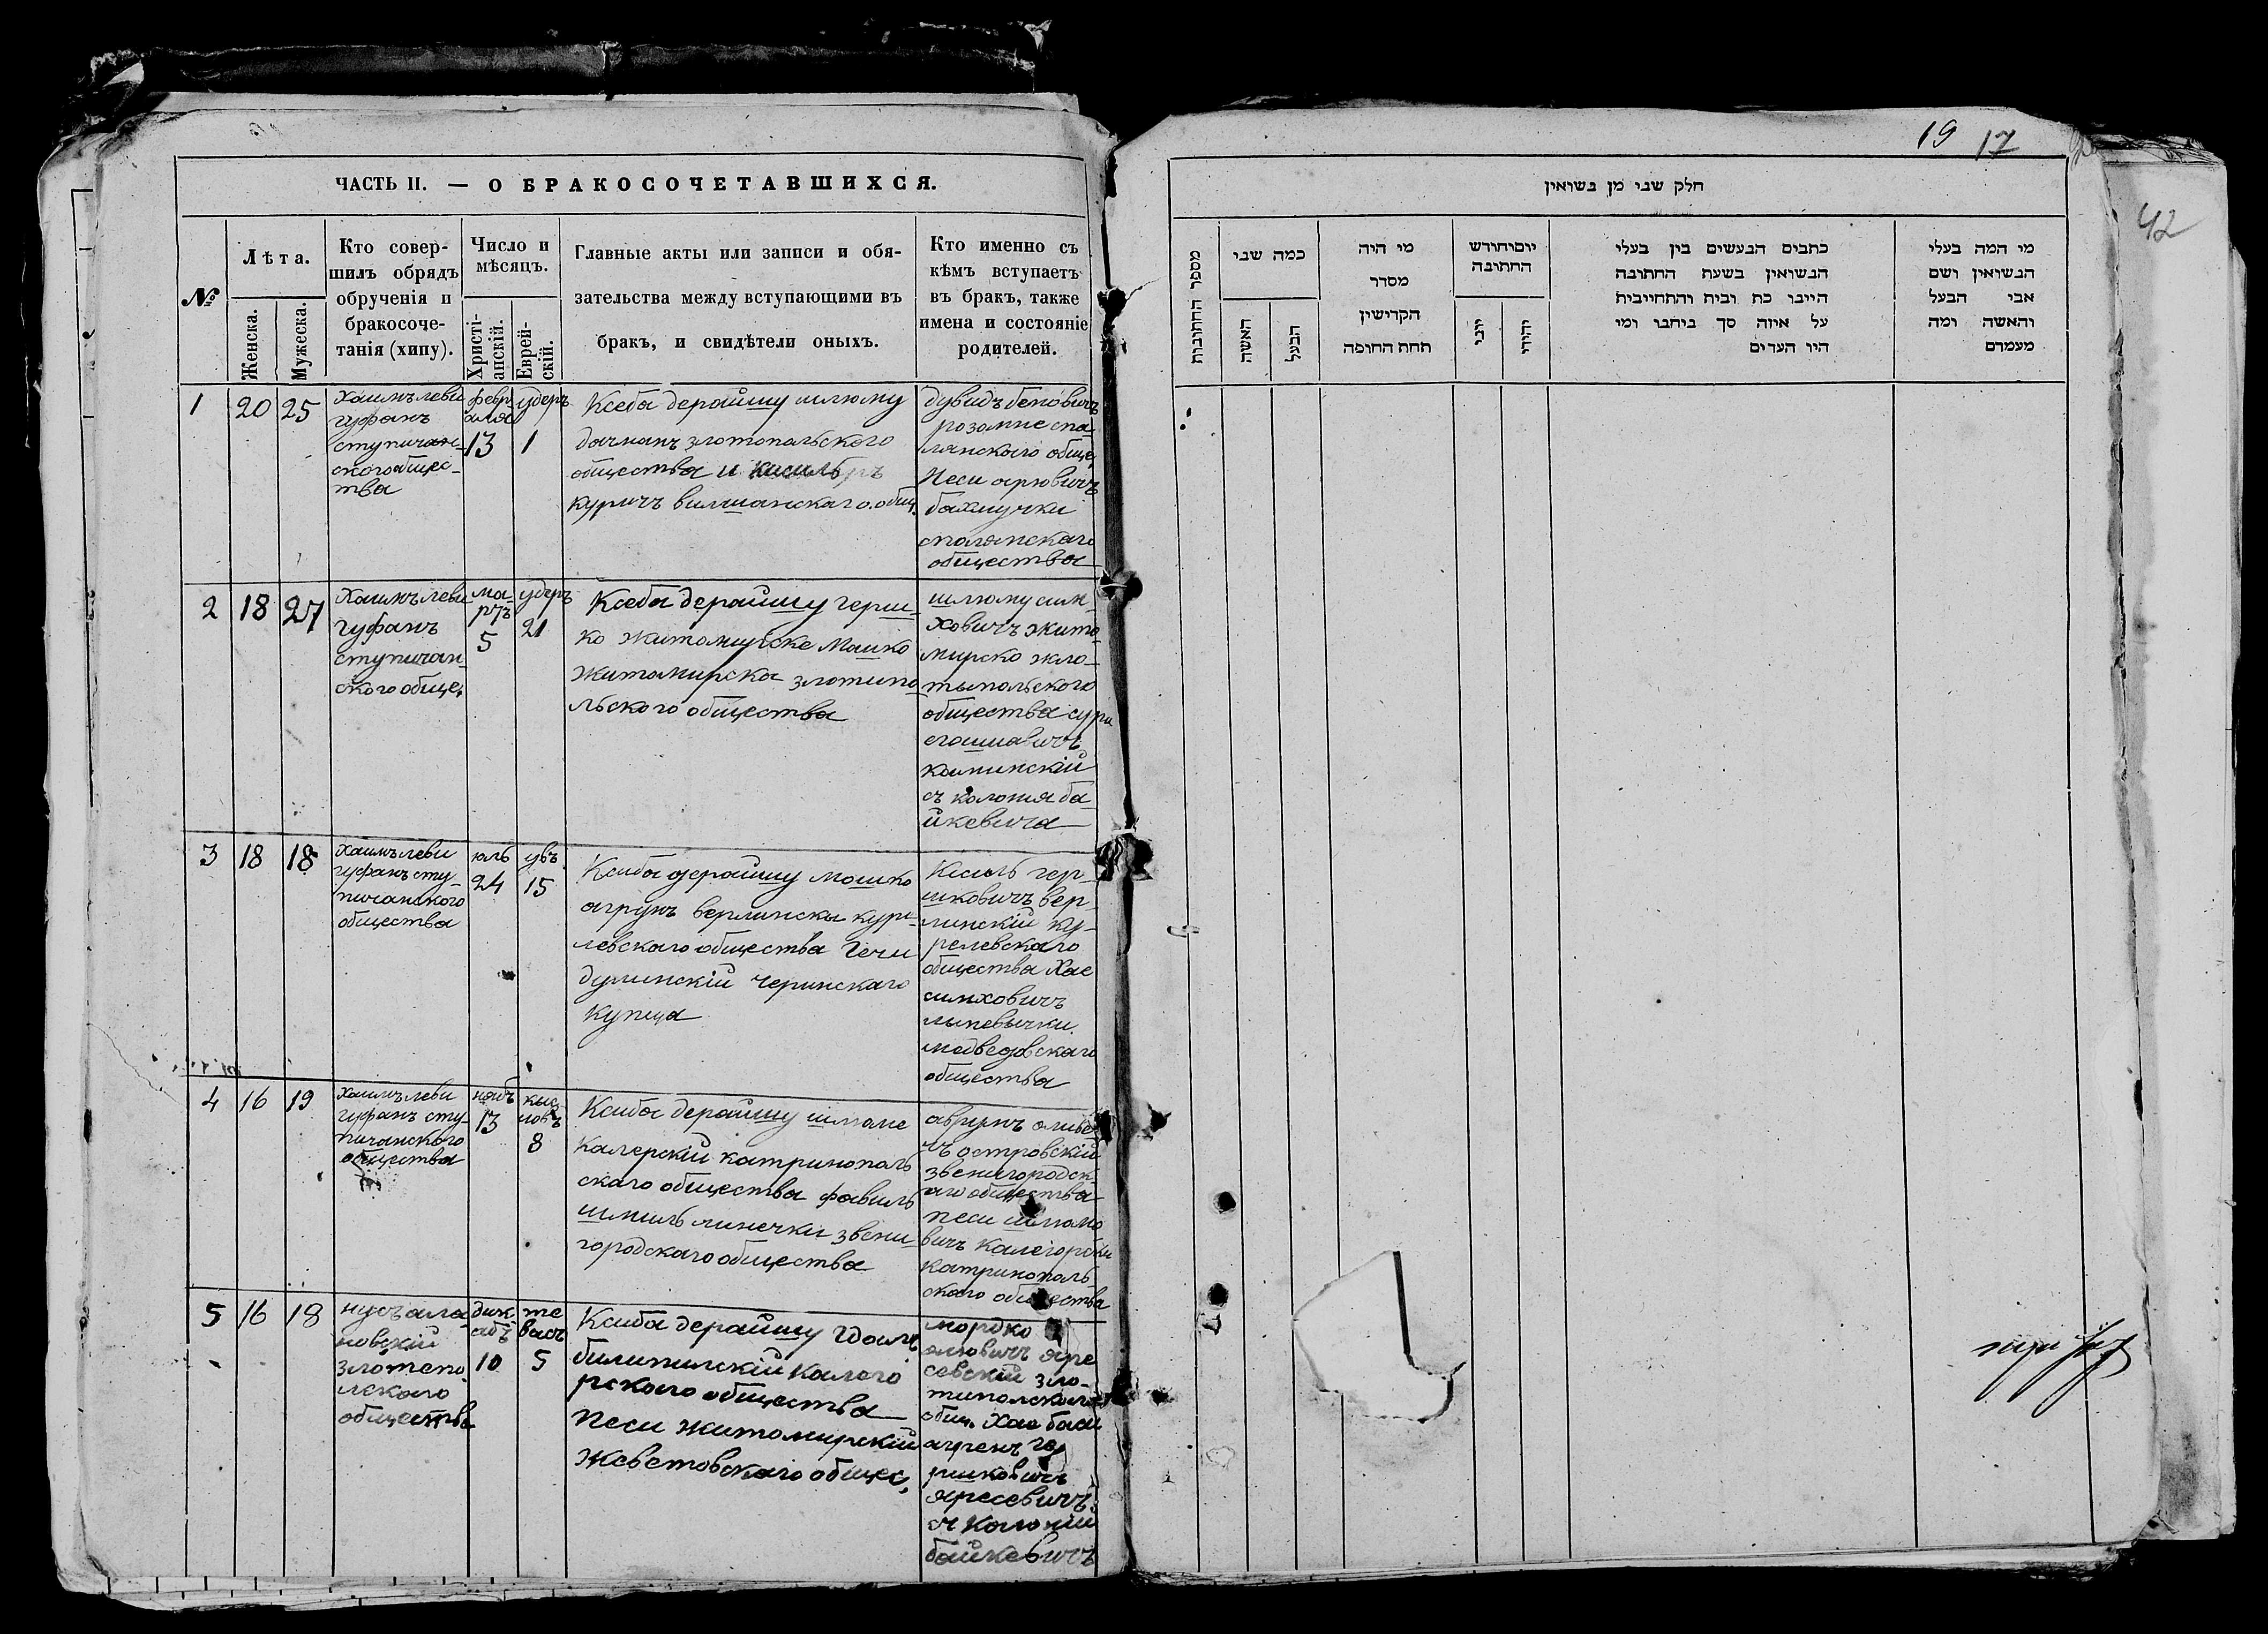 ЧАСТЬ II. — О БРАКОСОЧЕТАВШИХСЯ.
№
Лѣта.
Женска.
Мужеска.
Кто совер-
шилъ обрядъ
обрученія и
бракосоче-
танія (хипу).
Число и
мѣсяцъ.
Христі-
анскій.
Еврей-
скій.
Главные акты или записи и обя-
зательства между вступающими въ
бракъ, и свидѣтели оныхъ.
Кто именно съ
кѣмъ вступаетъ
въ бракъ, также
имена и состояніе
родителей.
1
20
25
Хаимъ леви
гуфанъ
ступичан-
ского общес-
тва
февр
аля
13
удеръ
1
Ксеба дерайшу шлюму
дачманъ злотопальского
общества и
куричъ вилшанскаго. общ.
дувидъ беновичъ
розамне спа-
лянского обще,
Песи арювичъ
бахмучки
сполянскаго
общества
2
18
27
Хаимъ леви
гуфанъ
ступичан-
ского обще,
ма-
ртъ
5
удеръ
21
Ксеба дерайшу герш-
ко житомирске Машко
житомирска злотипо-
льского общества
шлюму сим-
ховичъ жито-
мирско зло-
тыпольского
общества сура
каминскій
съ колонія ба-
йкевича
3
18
18
Хаимъ леви
гуфанъ сту-
пичанского
общества
юль
24
увъ
15
Ксиба дерайшу мошко
агрунъ верлинска куре-
левскаго общества Гечи
дулинскій черинскаго
купца
Кисиль гер-
шковичъ вер-
линскій ку-
релевскаго
общества Хае
симховичъ
лыневички
медведовскаго
общества
4
16
19
Хаимъ леви
гуфанъ сту-
пичанского
общества
нояб
13
кыс-
ловъ
8
Ксиба дерайшу шмоне
Калерскій катринополь
скаго общества фавиль
шмиль линечки звени-
городскаго общества
аврумъ
чъ островскій
звенигородск-
аго общества
песи шлюмо
вичъ Калегорски
Катринополь-
скаго общества
5
16
18
нусъ ала-
новскій
злотепо
лскаго
общества
дик-
абъ
10
те
васъ
5
Ксиба дерайшу
билипилскій Калаго
рского общества
Песи житомирскій
жеветовскаго общес,
мордко
яре
севскій зло-
типолского
общ. Хае баси
агренъ ге
ршковичъ
яресевичъ
съ Колоніи
байкевичъ
19 17
42
חלק שני מן נשואין
מספר החתונות
כמה שני
האשה
הבעל
מי היה
מסדר
הקדישין
תחת החופה
יום וחודש
החתונה
יוני
יהודי
כתבים הנעשים בין בעלי
הנשואין בשעת החתונה
היינו כת ובית והתחייבית
על איזה סך ניתנו ומי
היו העדים
מי המה בעלי
הנשואין ושם
אבי הבעל
והאשה ומה
מעמדם